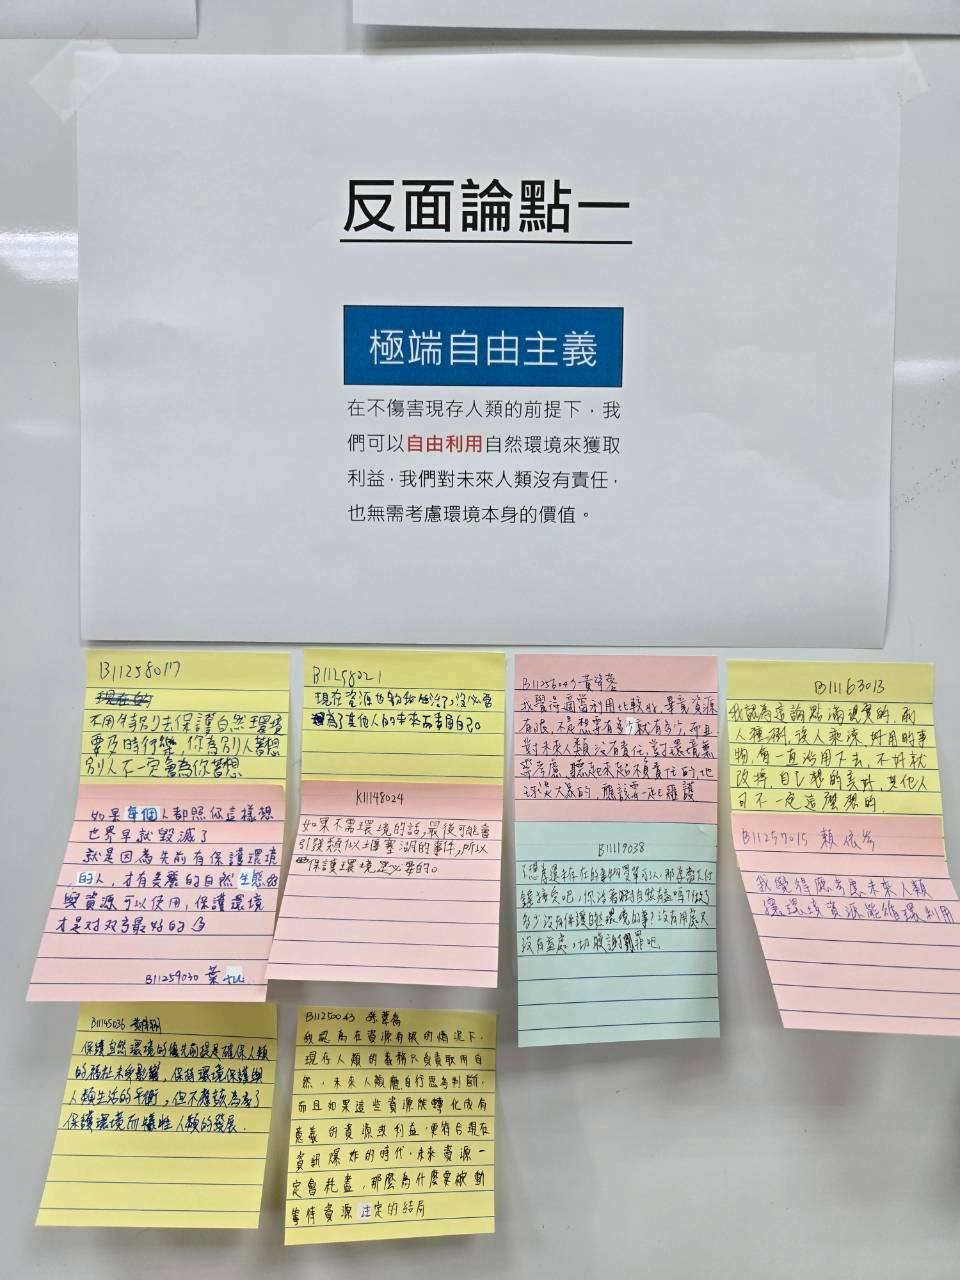 反面論點一
極端自由主義
在不傷害現存人類的前提下，我
們可以自由利用自然環境來獲取
利益，我們對未來人類沒有責任，
也無需考慮環境本身的價值。
B11258017
現在的
不用特別去保護自然環境
要及時行樂，你為別人著想
別人不一定會為你著想
B11258021
現在資源也夠給
為了其他人的未來而委屈自己。
B11256049
我覺得適當利用比較好，畢竟資源
有限，不是想要有多少就有多少，而且
對未來人類沒有責任，對環境無
需考慮，聽起來起不負責任的，地
球是大家的，應該要一起維護
B11163013
我認為這論點滿現實的，前
人種樹，後人乘涼，好用的事
物，會一直沿用下去，不好就
改掉，自己想的美好，其他人
可不一定這麼想的.
如果每個人都照你這樣想
世界早就毀滅了
就是因為先前有保護環境
的人，才有美麗的自然生態
資源可以使用，保護環境
才是對双方最好的
B11259030 葉
K11148024
如果不需環境的話，最後可能會
引發類似土堰塞湖的事件，所以
保護環境是必要的。
B11119038
多少沒有保護自然環境的事？沒有用處又
沒有益處，切腹謝罪吧
B11259015 賴依
我覺得應考慮未來人類
讓環境資源能循環利用
B11145036
保護自然環境的優先前提是確保人類
的福祉未受影響，保持環境保護與
人類生活的平衡，但不應該為了
保護環境而犧牲人類的發展.
B11250043
我認為在資源有限的情況下，
現存人類的義務只負責取用自
然，未來人類應自行思考判斷，
而且如果這些資源能轉化成有
意義的資源或利益，更符合現在
資訊爆炸的時代，未來資源一
定會耗盡，那麼為什麼要被動
等待資源注定的結局